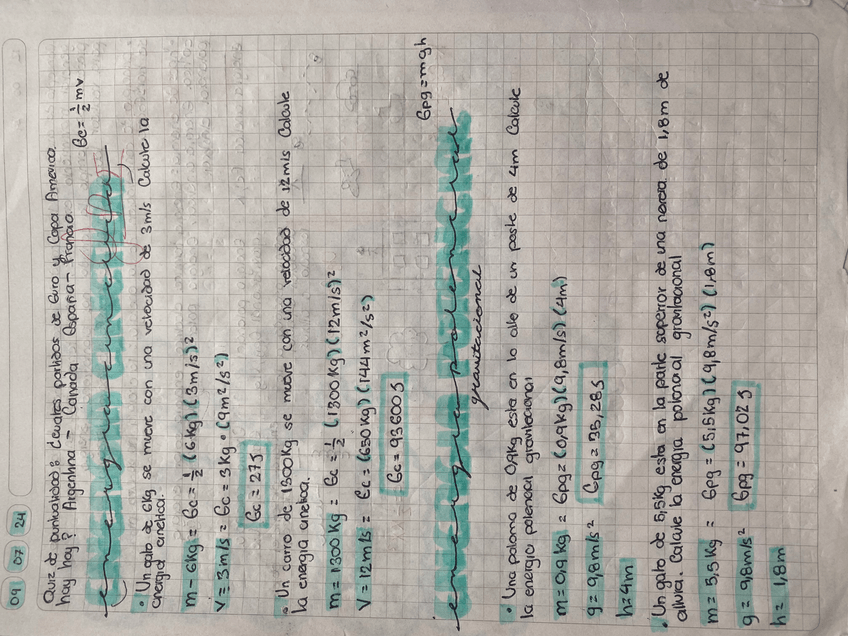 09 07 24
Quiz de puntualidad: Cuales partidos de Euro y Copa America
hay hoy? Argentina - Canada España - Francia
energia cinetica Ec = 1/2 mv
• Un gato de 6kg se mueve con una velocidad de 3m/s Calcule la
energia cinetica.
m - 6kg = Ec = 1/2 (6kg) (3m/s)²
V = 3m/s = Ec = 3kg • (9m²/s²)
Ec = 27J
• Un carro de 1300kg se mueve con una velocidad de 12m/s Calcule
la energia cinetica.
m = 1300kg = Ec = 1/2 (1300kg) (12m/s)²
V = 12m/s = Ec = (650kg) (144m²/s²)
Ec = 93600J
energia potencial Epg = mgh
gravitacional
• Una paloma de 0,9kg esta en lo alto de un poste de 4m Calcule
la energia potencial gravitacional
m = 0,9kg = Epg = (0,9kg) (9,8m/s) (4m)
g = 9,8m/s² Epg = 35,28J
h = 4m
• Un gato de 5,5kg esta en la parte superior de una nevera de 1,8m de
altura. Calcule la energia potencial gravitacional
m = 5,5kg = Epg = (5,5kg) (9,8m/s²) (1,8m)
g = 9,8m/s² Epg = 97,02J
h = 1,8m